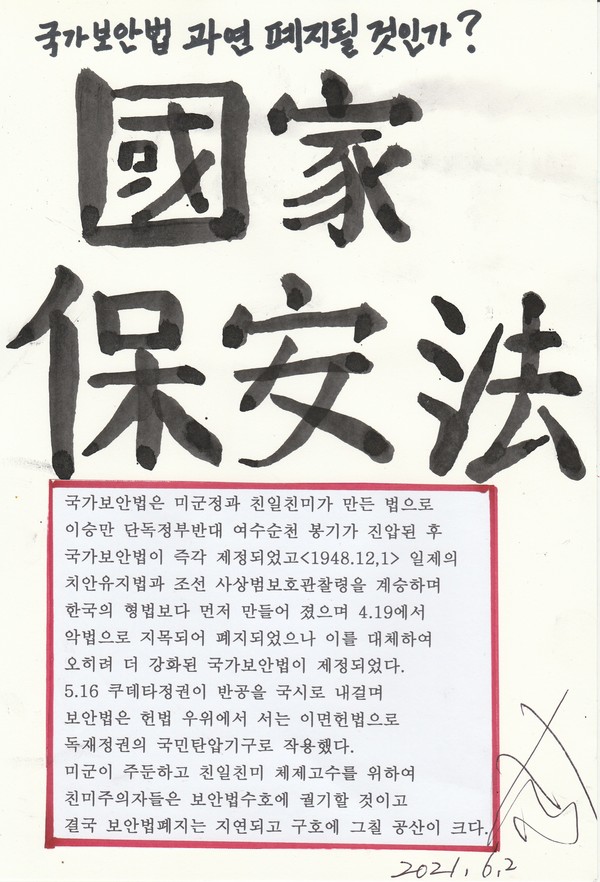 국가보안법 과연 폐지될 것인가?
國家
保安法
국가보안법은 미군정과 친일친미가 만든 법으로
이승만 단독정부반대 여수순천 봉기가 진압된 후
국가보안법이 즉각 제정되었고<1948.12,1> 일제의
치안유지법과 조선 사상범보호관찰령을 계승하며
한국의 형법보다 먼저 만들어 졌으며 4.19에서
악법으로 지목되어 폐지되었으나 이를 대체하여
오히려 더 강화된 국가보안법이 제정되었다.
5.16 쿠테타정권이 반공을 국시로 내걸며
보안법은 헌법 우위에서 서는 이면헌법으로
독재정권의 국민탄압기구로 작용했다.
미군이 주둔하고 친일친미 체제고수를 위하여
친미주의자들은 보안법수호에 궐기할 것이고
결국 보안법폐지는 지연되고 구호에 그칠 공산이 크다.
2021.6.2